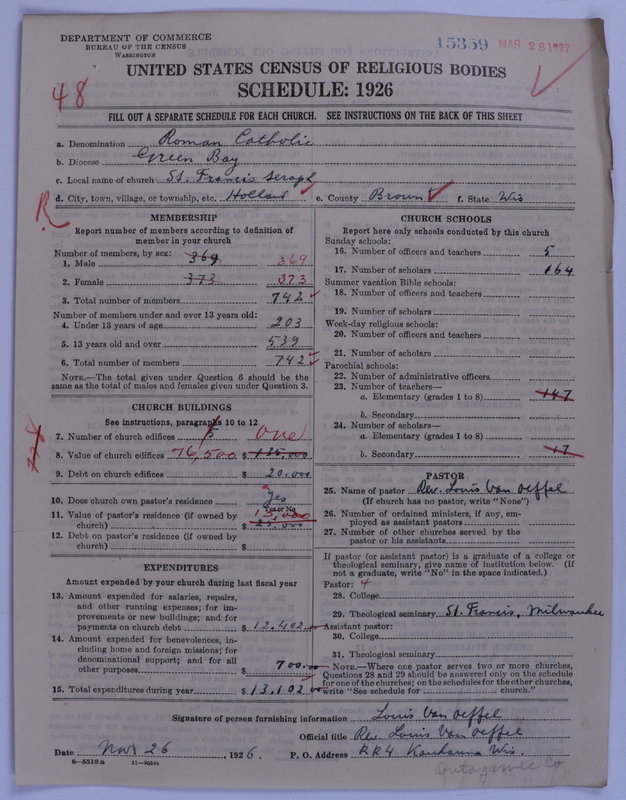 DEPARTMENT OF COMMERCE
BUREAU OF THE CENSUS
WASHINGTON
15359 MAR 28 1927
UNITED STATES CENSUS OF RELIGIOUS BODIES
SCHEDULE: 1926
48
FILL OUT A SEPARATE SCHEDULE FOR EACH CHURCH. SEE INSTRUCTIONS ON THE BACK OF THIS SHEET
a. Denomination Roman Catholic
b. Diocese Green Bay
c. Local name of church St. Francis Seraph
d. City, town, village, or township, etc. Holland e. County Brown f. State Wis
R
MEMBERSHIP
Report number of members according to definition of member in your church
Number of members, by sex:
1. Male 369 369
2. Female 373 373
3. Total number of members 742
Number of members under and over 13 years old:
4. Under 13 years of age 203
5. 13 years old and over 539
6. Total number of members 742
NOTE.—The total given under Question 6 should be the same as the total of males and females given under Question 3.
CHURCH BUILDINGS
See instructions, paragraphs 10 to 12
7. Number of church edifices one
8. Value of church edifices 76,500 $ 135.000
9. Debt on church edifices $ 20.000
10. Does church own pastor's residence Yes
Yes or No
11. Value of pastor's residence (if owned by church) $ 15,000
12. Debt on pastor's residence (if owned by church) $
EXPENDITURES
Amount expended by your church during last fiscal year
13. Amount expended for salaries, repairs, and other running expenses; for improvements or new buildings; and for payments on church debt $ 12.402
14. Amount expended for benevolences, including home and foreign missions; for denominational support; and for all other purposes $ 700
15. Total expenditures during year $ 13.102
CHURCH SCHOOLS
Report here only schools conducted by this church
Sunday schools:
16. Number of officers and teachers 5
17. Number of scholars 164
Summer vacation Bible schools:
18. Number of officers and teachers
19. Number of scholars
Week-day religious schools:
20. Number of officers and teachers
21. Number of scholars
Parochial schools:
22. Number of administrative officers
23. Number of teachers—
a. Elementary (grades 1 to 8) 147
b. Secondary
24. Number of scholars—
a. Elementary (grades 1 to 8)
b. Secondary 17
PASTOR
25. Name of pastor Rev. Louis Van Oeffel
(If church has no pastor, write "None")
26. Number of ordained ministers, if any, employed as assistant pastors
27. Number of other churches served by the pastor or his assistants
If pastor (or assistant pastor) is a graduate of a college or theological seminary, give name of institution below. (If not a graduate, write "No" in the space indicated.)
Pastor: 4
28. College
29. Theological seminary St. Francis, Milwaukee
Assistant pastor:
30. College
31. Theological seminary
NOTE.—Where one pastor serves two or more churches, Questions 28 and 29 should be answered only on the schedule for one of the churches; on the schedules for the other churches, write "See schedule for church."
Signature of person furnishing information Louis Van Oeffel
Official title Rev. Louis Van Oeffel
Date Nov 26, 1926. P. O. Address RR4 Kaukauna Wis.
8-5318a
Outagamie Co.